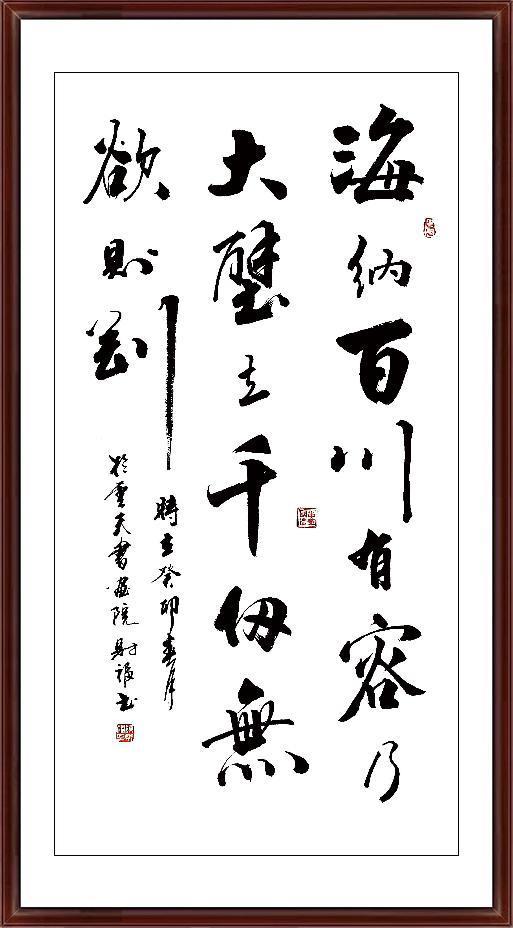 海納百川有容乃
大壁立千仞無
欲則剛
時在癸卯春月
於雲夫書畫院